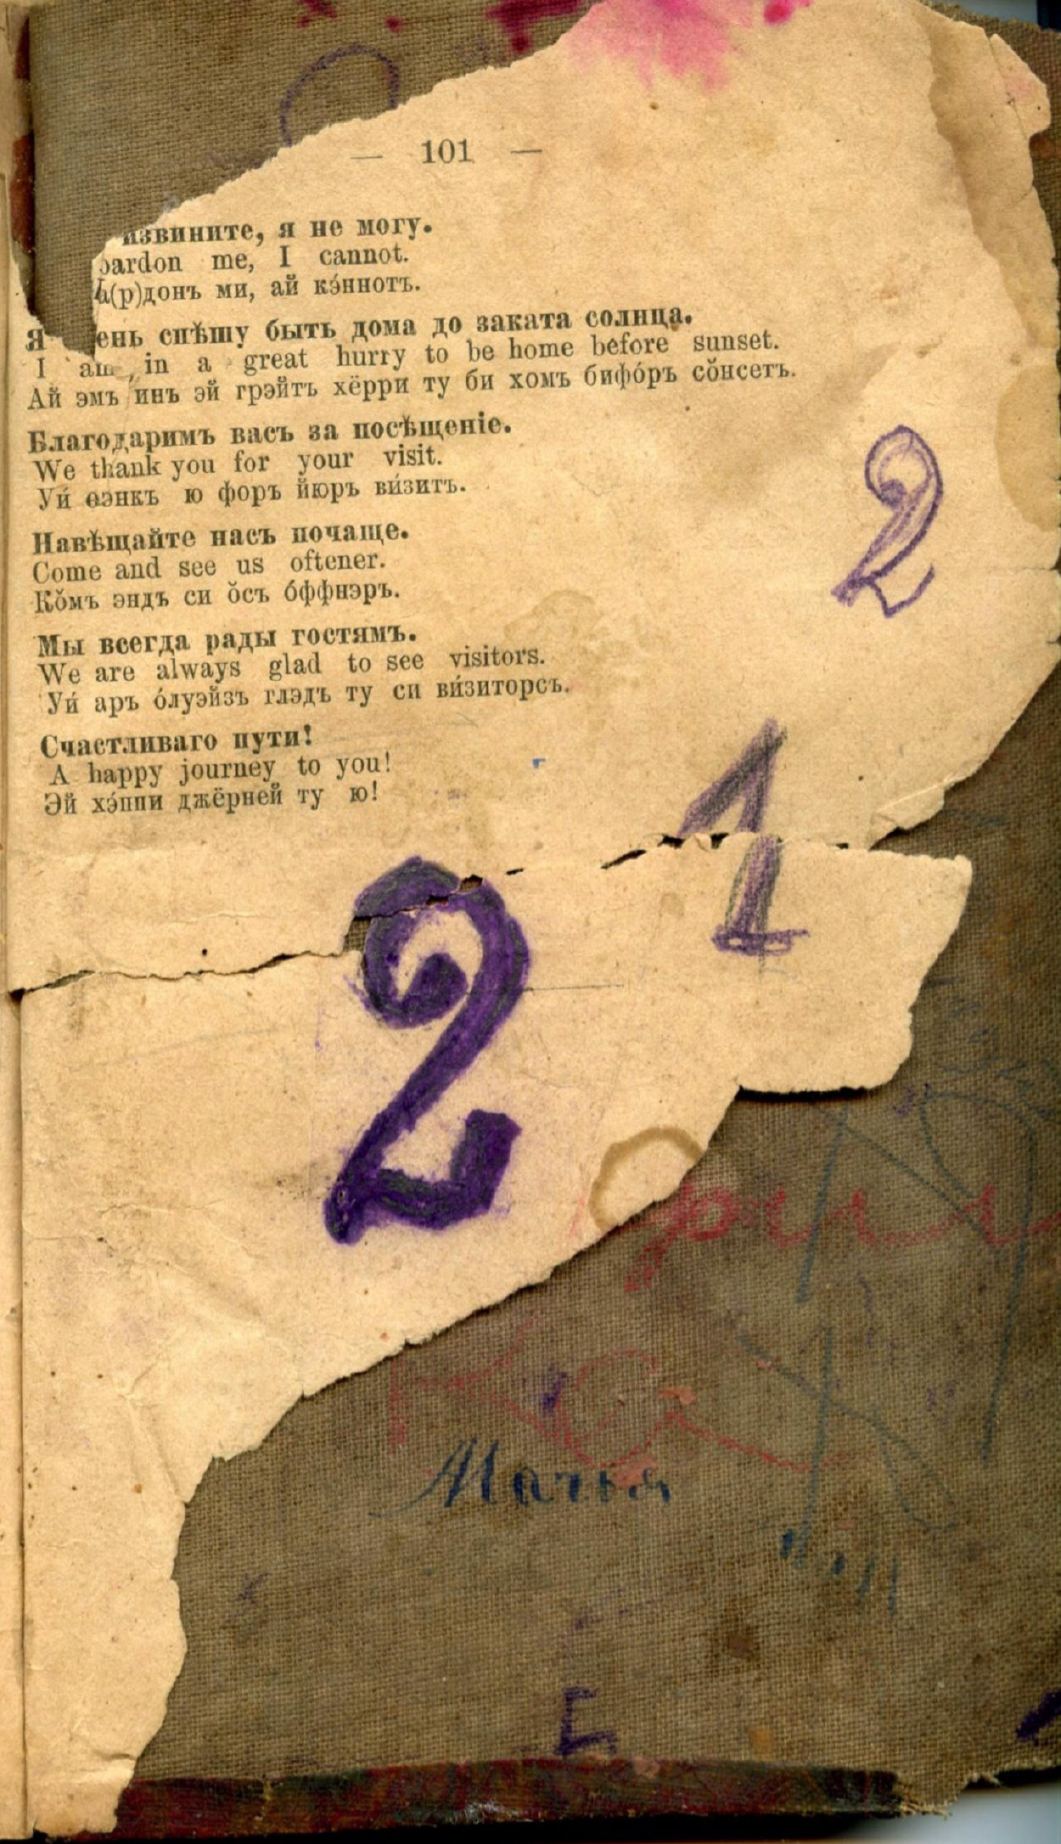 — 101 —
извините, я не могу.
pardon me, I cannot.
а(р)донъ ми, ай кэ́ннотъ.
Я ень спѣшу быть дома до заката солнца.
I am in a great hurry to be home before sunset.
Ай эмъ инъ эй грэйтъ хёрри ту би хомъ бифо́ръ со̆нсетъ.
Благодаримъ васъ за посѣщеніе.
We thank you for your visit.
Уи́ ѳэнкъ ю форъ йюръ ви́зитъ.
Навѣщайте насъ почаще.
Come and see us oftener.
Ко̆мъ эндъ си о̆съ о́ффнэръ.
Мы всегда рады гостямъ.
We are always glad to see visitors.
Уи́ аръ о́луэйзъ глэдъ ту си ви́зиторсъ.
Счастливаго пути!
A happy journey to you!
Эй хэ́ппи джёрней ту ю!
2
1
2